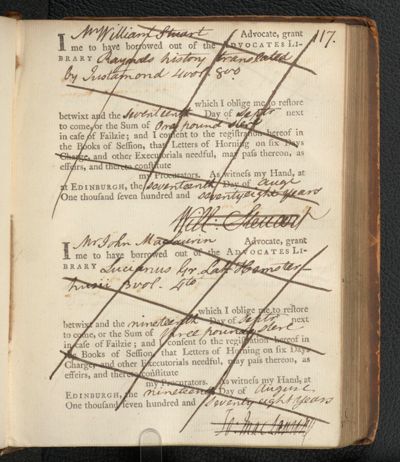 117.
I Mr William Stuart Advocate, grant
me to have borrowed out of the ADVOCATES LI-
BRARY Raynals history translated
by Justamond 4 vol. 8vo
which I oblige me to restore
betwixt and the seventeenth Day of Septr next
to come, or the Sum of One pound sterl
in case of Failzie; and I consent to the registration hereof in
the Books of Session, that Letters of Horning on six Days
Charge, and other Executorials needful, may pass thereon, as
effeirs, and thereto constitute
my Procurators. As witness my Hand, at
at EDINBURGH, the seventeenth Day of Augt
One thousand seven hundred and seventy eight years
Will: Steuart
I Mr John Maclaurin Advocate, grant
me to have borrowed out of the ADVOCATES LI-
BRARY Lucianus Gr. Lat. Hemster
husii 3 vol. 4to
which I oblige me to restore
betwixt and the nineteenth Day of Septr next
to come, or the Sum of three pounds sterl
in case of Failzie; and I consent to the registration hereof in
the Books of Session, that Letters of Horning on six Days
Charge, and other Executorials needful, may pass thereon, as
effeirs, and thereto constitute
my Procurators. As witness my Hand, at
EDINBURGH, the nineteenth Day of August
One thousand seven hundred and seventy eight years
Jo. Maclaurin